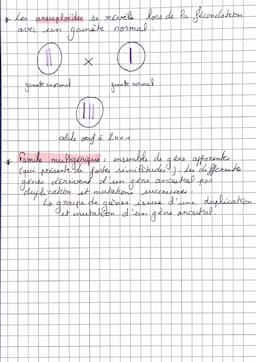 * Les aneuploïdies se révèle lors de la fécondation
avec un gamète normal
x
gamète anormal gamète normal
cellule œuf à 2n+1
* Famille multigénique : ensemble de gène apparentés
(qui présente de fortes similitudes). Les différents
gènes dérivent d'un gène ancestral par
duplication et mutations successives
↳ groupe de gènes issus d'une duplication
et mutation d'un gène ancestral.